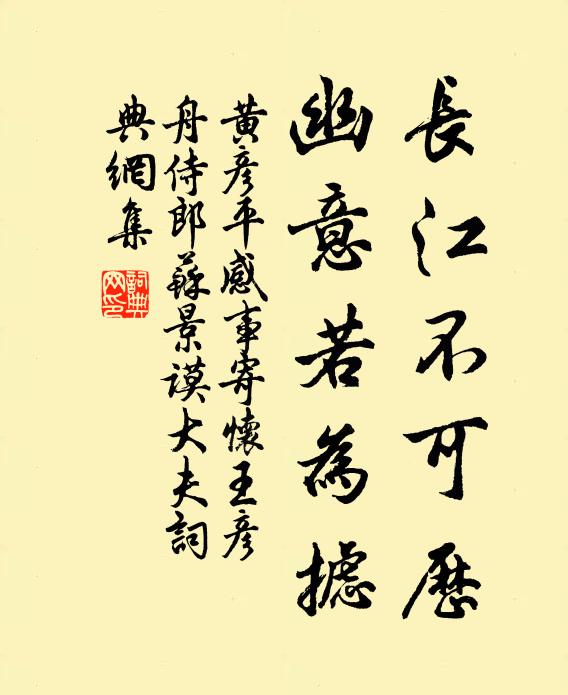 長江不可歷
幽意若為攄
黃彥平感事寄懷王彥
舟侍郎蘇景謨大夫詞
典網集
詞典網印